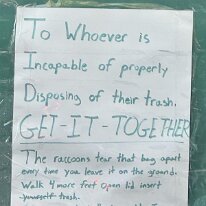 To Whoever is
Incapable of properly
Disposing of their trash.
GET-IT-TOGETHER
The raccoons tear that bag apart
every time you leave it on the ground.
Walk 4 more feet open lid insert
yourself trash.